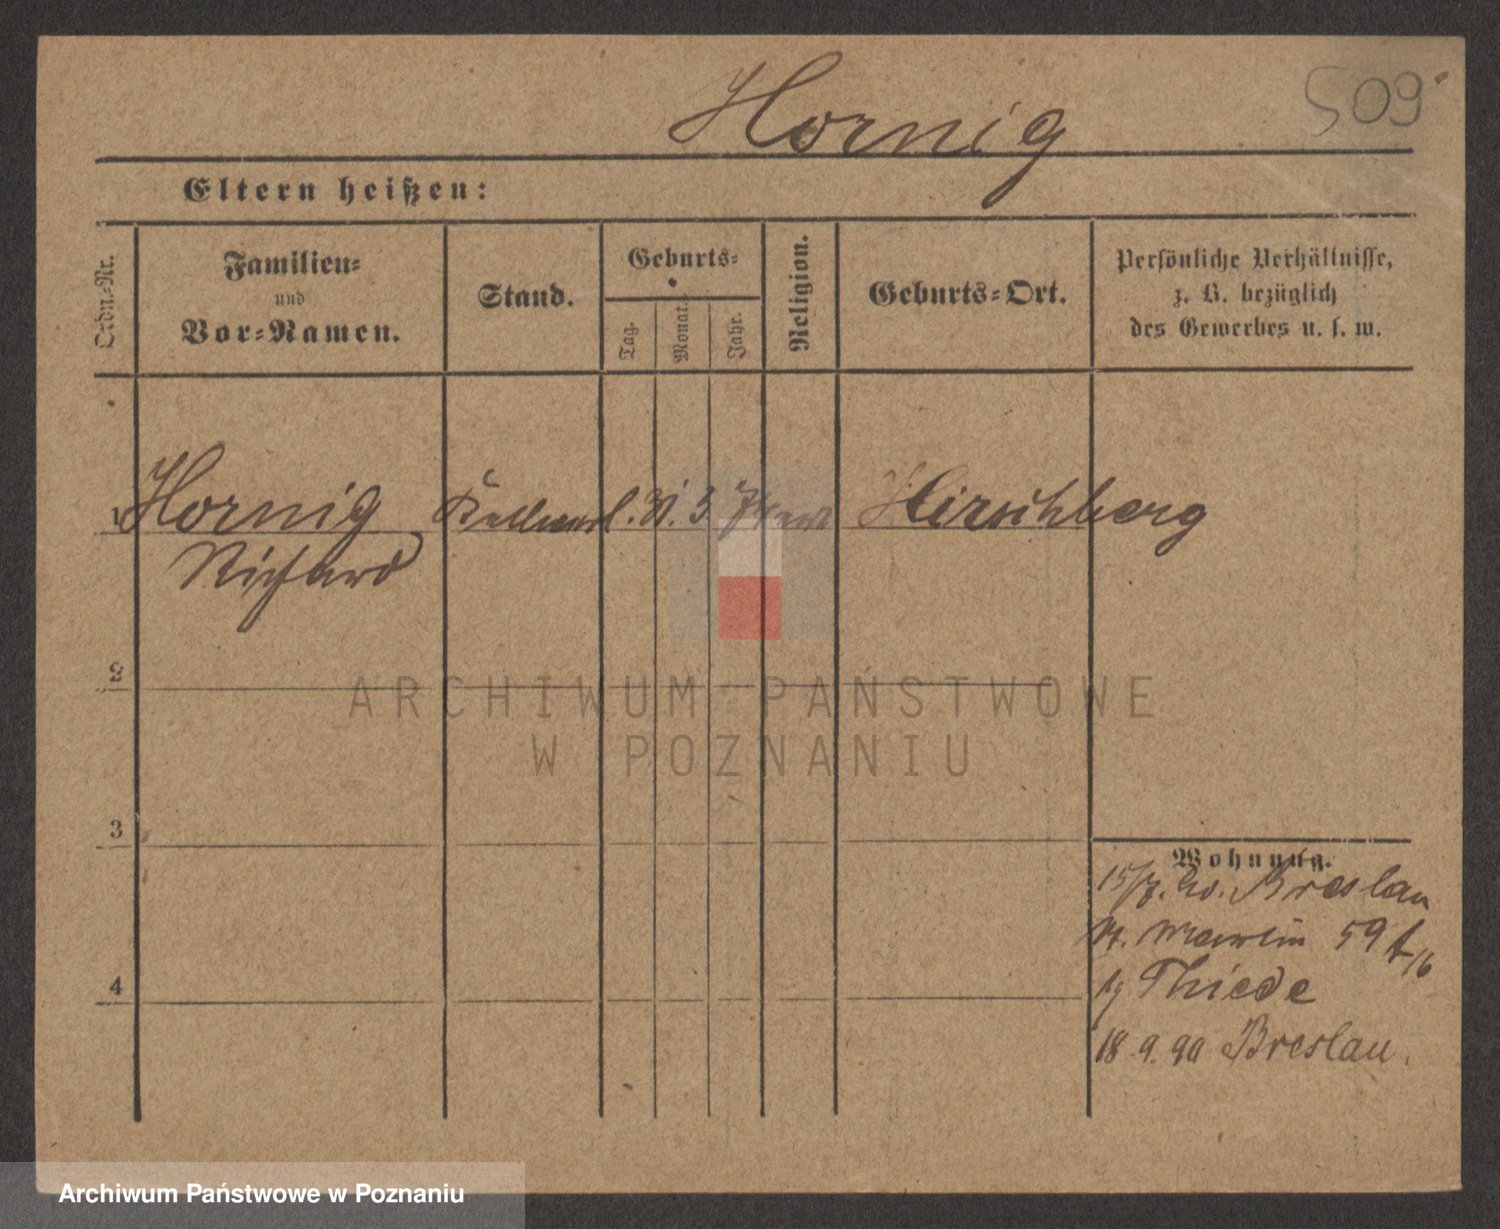 Hornig
509
Eltern heißen:
Ordn.-Nr.
Familien-
und
Vor-Namen.
Stand.
Geburts-
Tag.
Monat.
Jahr.
Religion.
Geburts-Ort.
Persönliche Verhältnisse,
z. B. bezüglich
des Gewerbes u. s. w.
1
Hornig
Richard
31. 3
Hirschberg
2
ARCHIWUM PAŃSTWOWE
W POZNANIU
3
Wohnung.
Breslau
Martin 59
4
Thiede
18 9. 90 Breslau.
Archiwum Państwowe w Poznaniu